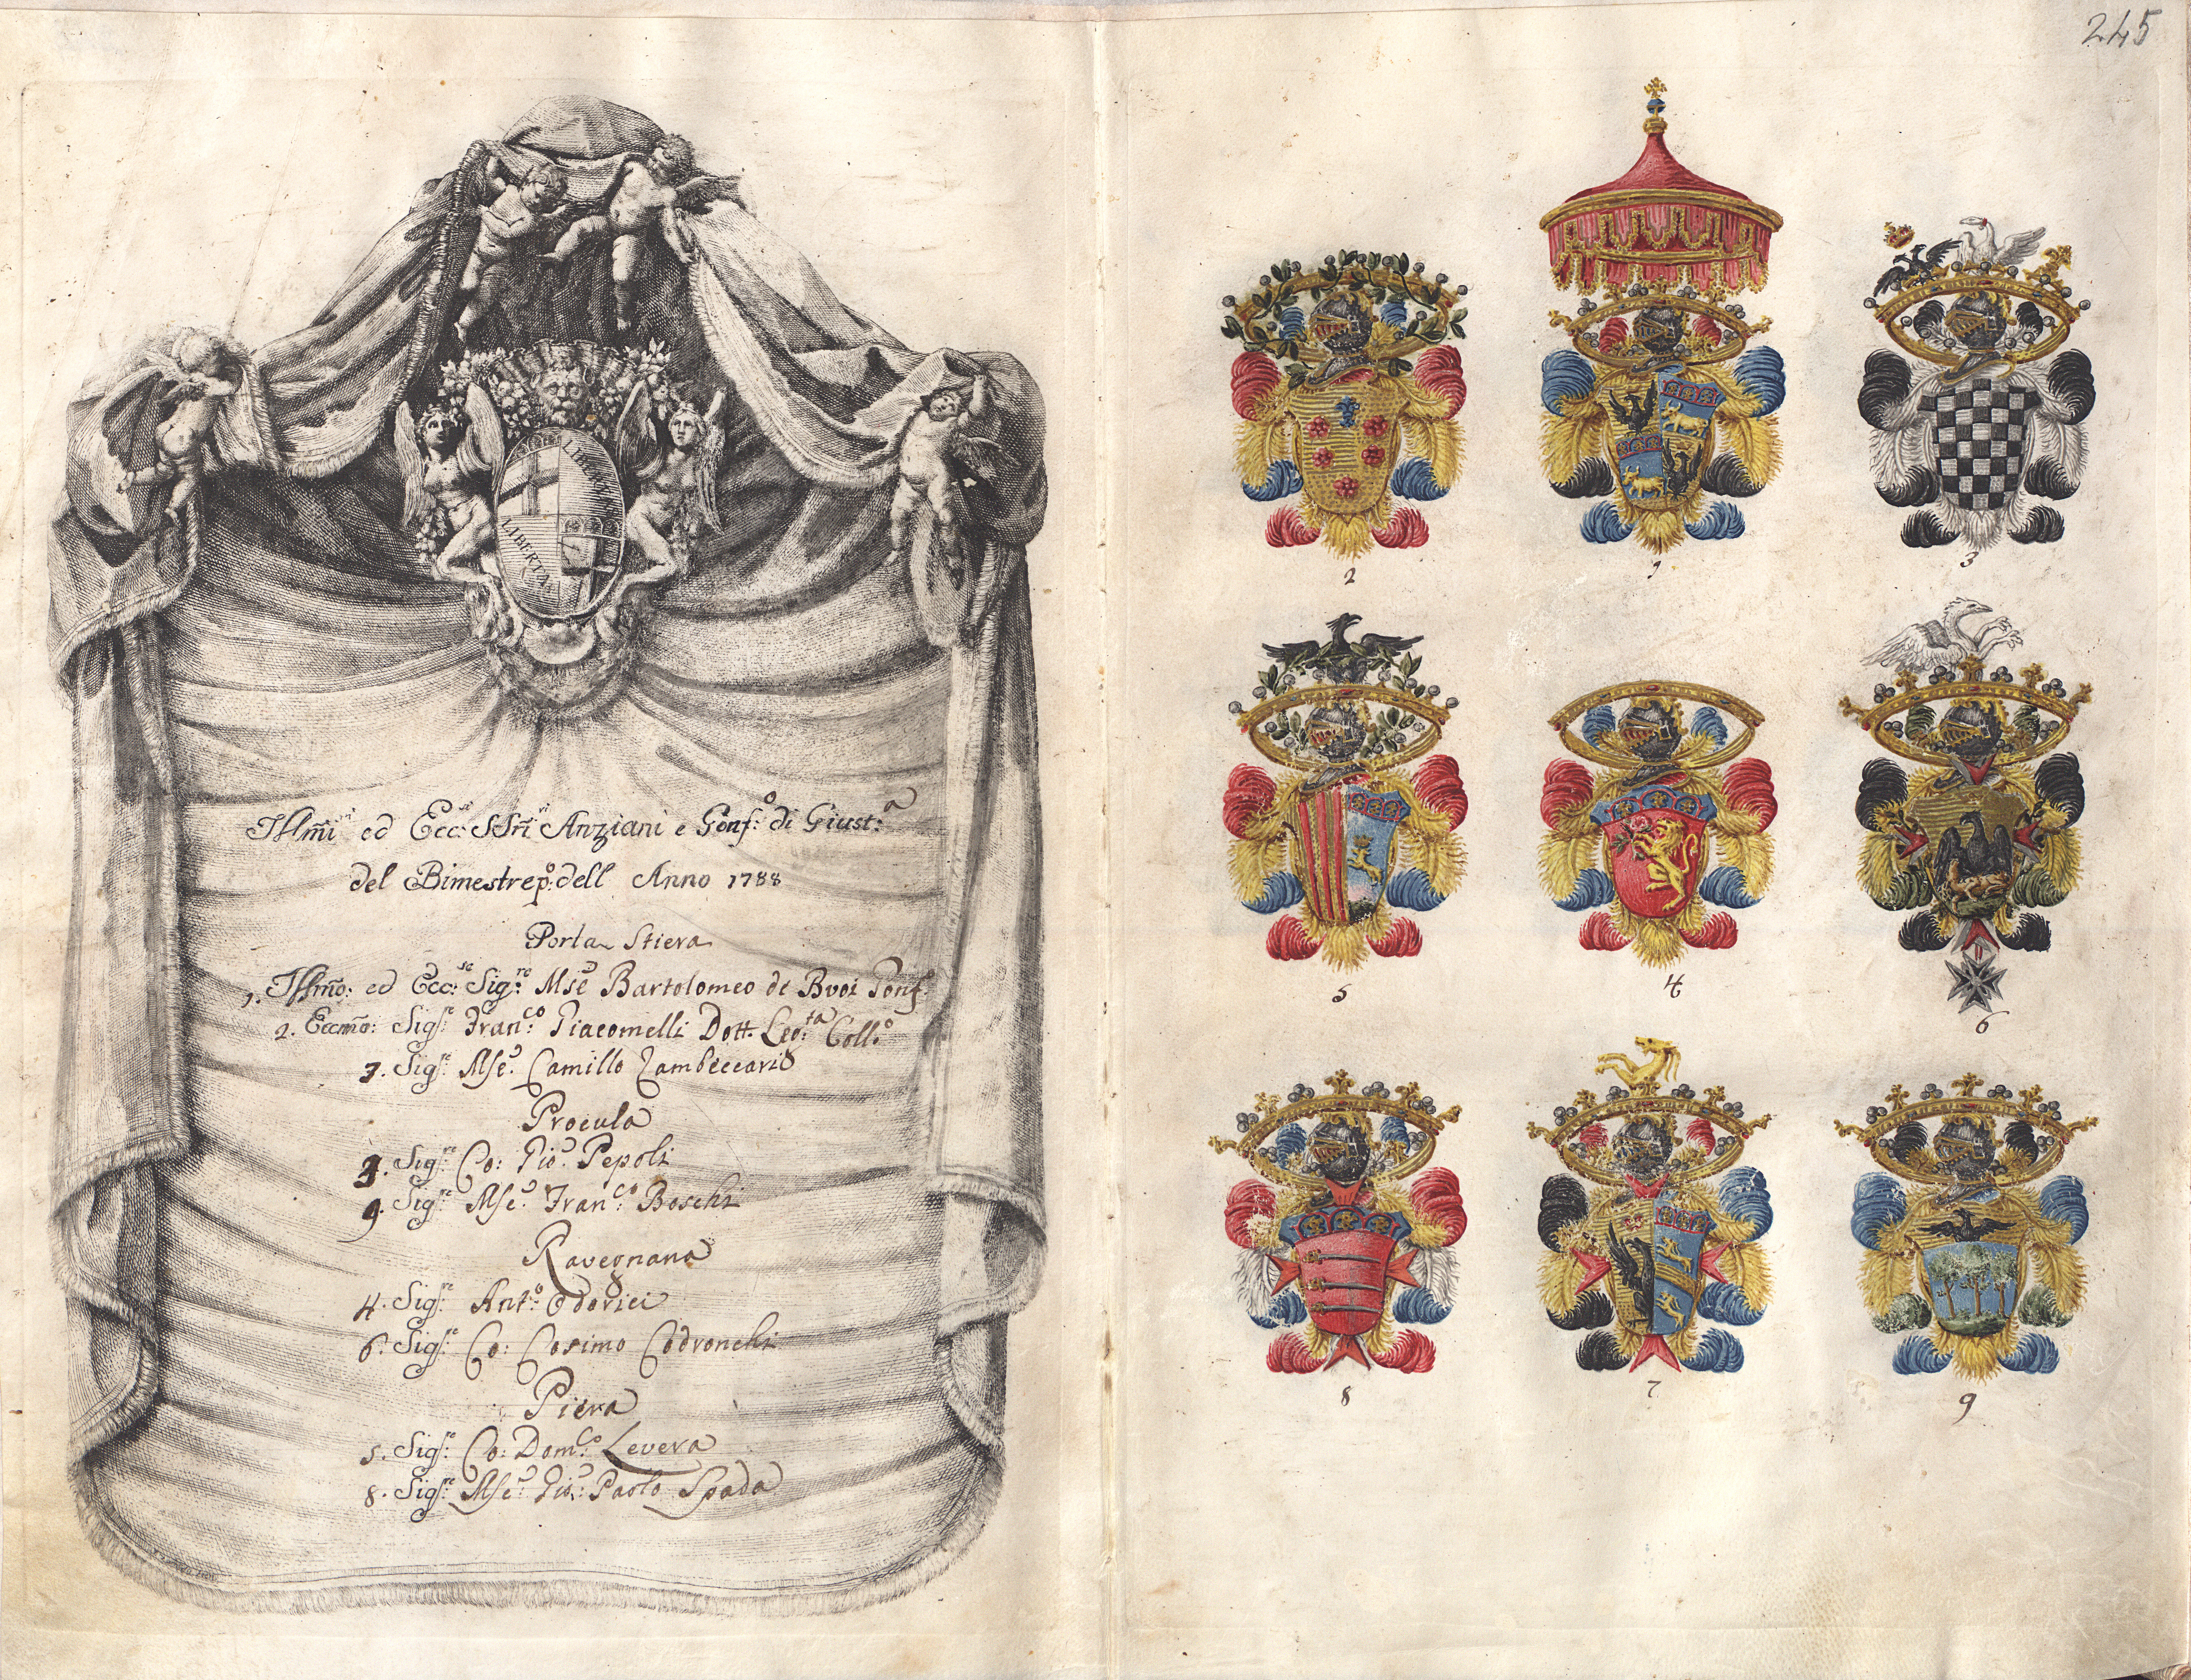 245
LIBERTAS
LIBERTAS
Illmi. ed Ecc.si SSri.ri Anziani e Gonf.o di Giust.a
del Bimestre po: dell Anno 1788
Porta Stiera
1. Illmo: ed Ecc:se Sig:re Mse. Bartolomeo de Buoi Gonf.
2. Eccmo: Sig:re Fran:co Giacomelli Dott. Leg:ta Coll:o
3. Sig:re Mse. Camillo Zambeccari
Procula
Sig:re Co: Gio: Pepoli
9. Sig:re Mse. Fran:co Boschi
Ravegnana
4. Sig:re Ant:o Odorici
6. Sig:re Co: Cosimo Codronchi
Piera
5. Sig:re Co: Dom:co Levera
8. Sig:re Mse. Gio: Paolo Spada
2
1
3
5
4
6
8
7
9